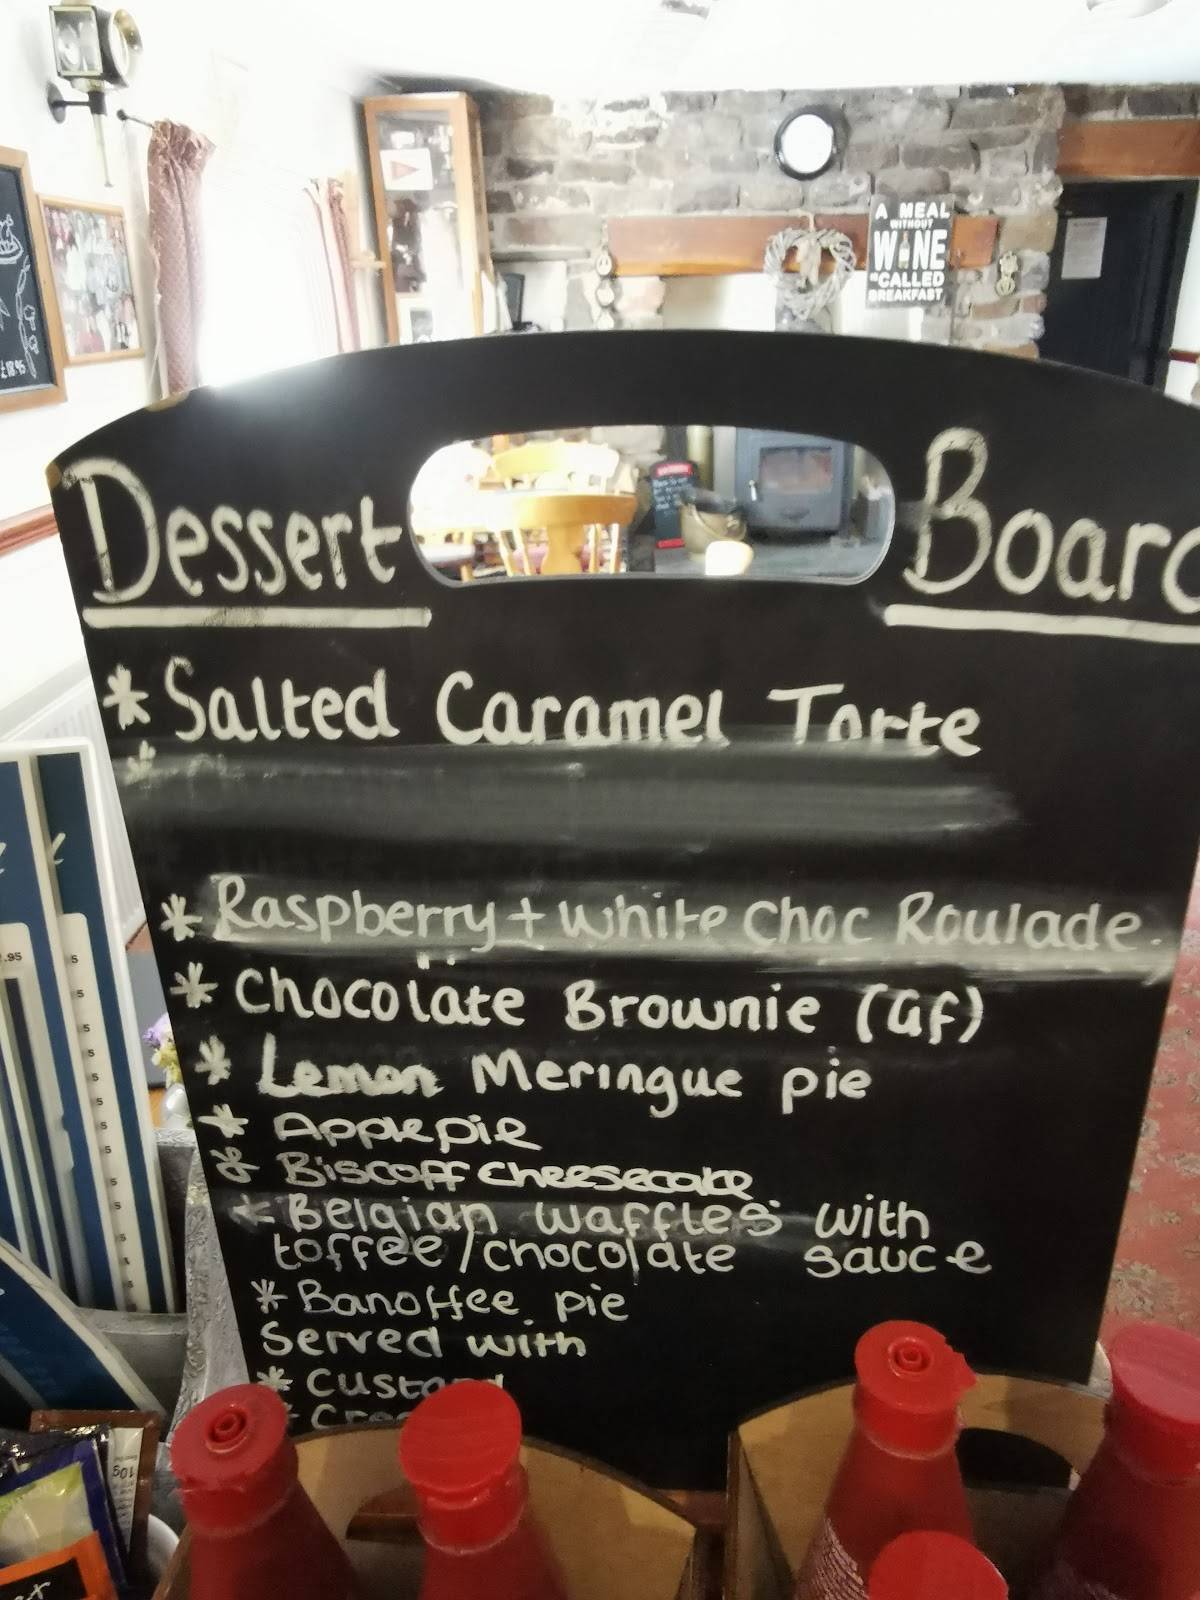 A MEAL
WITHOUT
WINE
IS CALLED
BREAKFAST
£18.95
Dessert Board
* Salted Caramel Torte
*
* Raspberry + white choc Roulade.
* Chocolate Brownie (Gf)
* Lemon Meringue pie
* Apple pie
* Biscoff cheesecake
* Belgian waffles with
toffee/chocolate sauce
* Banoffee pie
Served with
* Custard
.95
10g